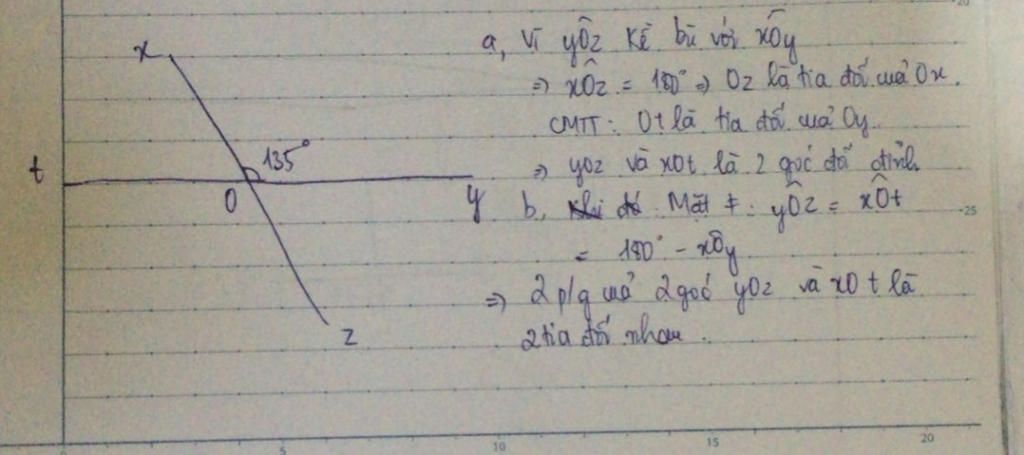 x
a, Vì yÔz kề bù với xÔy
=> xÔz = 180° => Oz là tia đối của Ox.
135°
CMTT: Ot là tia đối của Oy.
t
=> yOz và xOt là 2 góc đối đỉnh
O
y
b, Mặt ≠: yÔz = xÔt
25
= 180° - xÔy
=> 2 p/g của 2 góc yOz và xOt là
z
2 tia đối nhau.
5
10
15
20